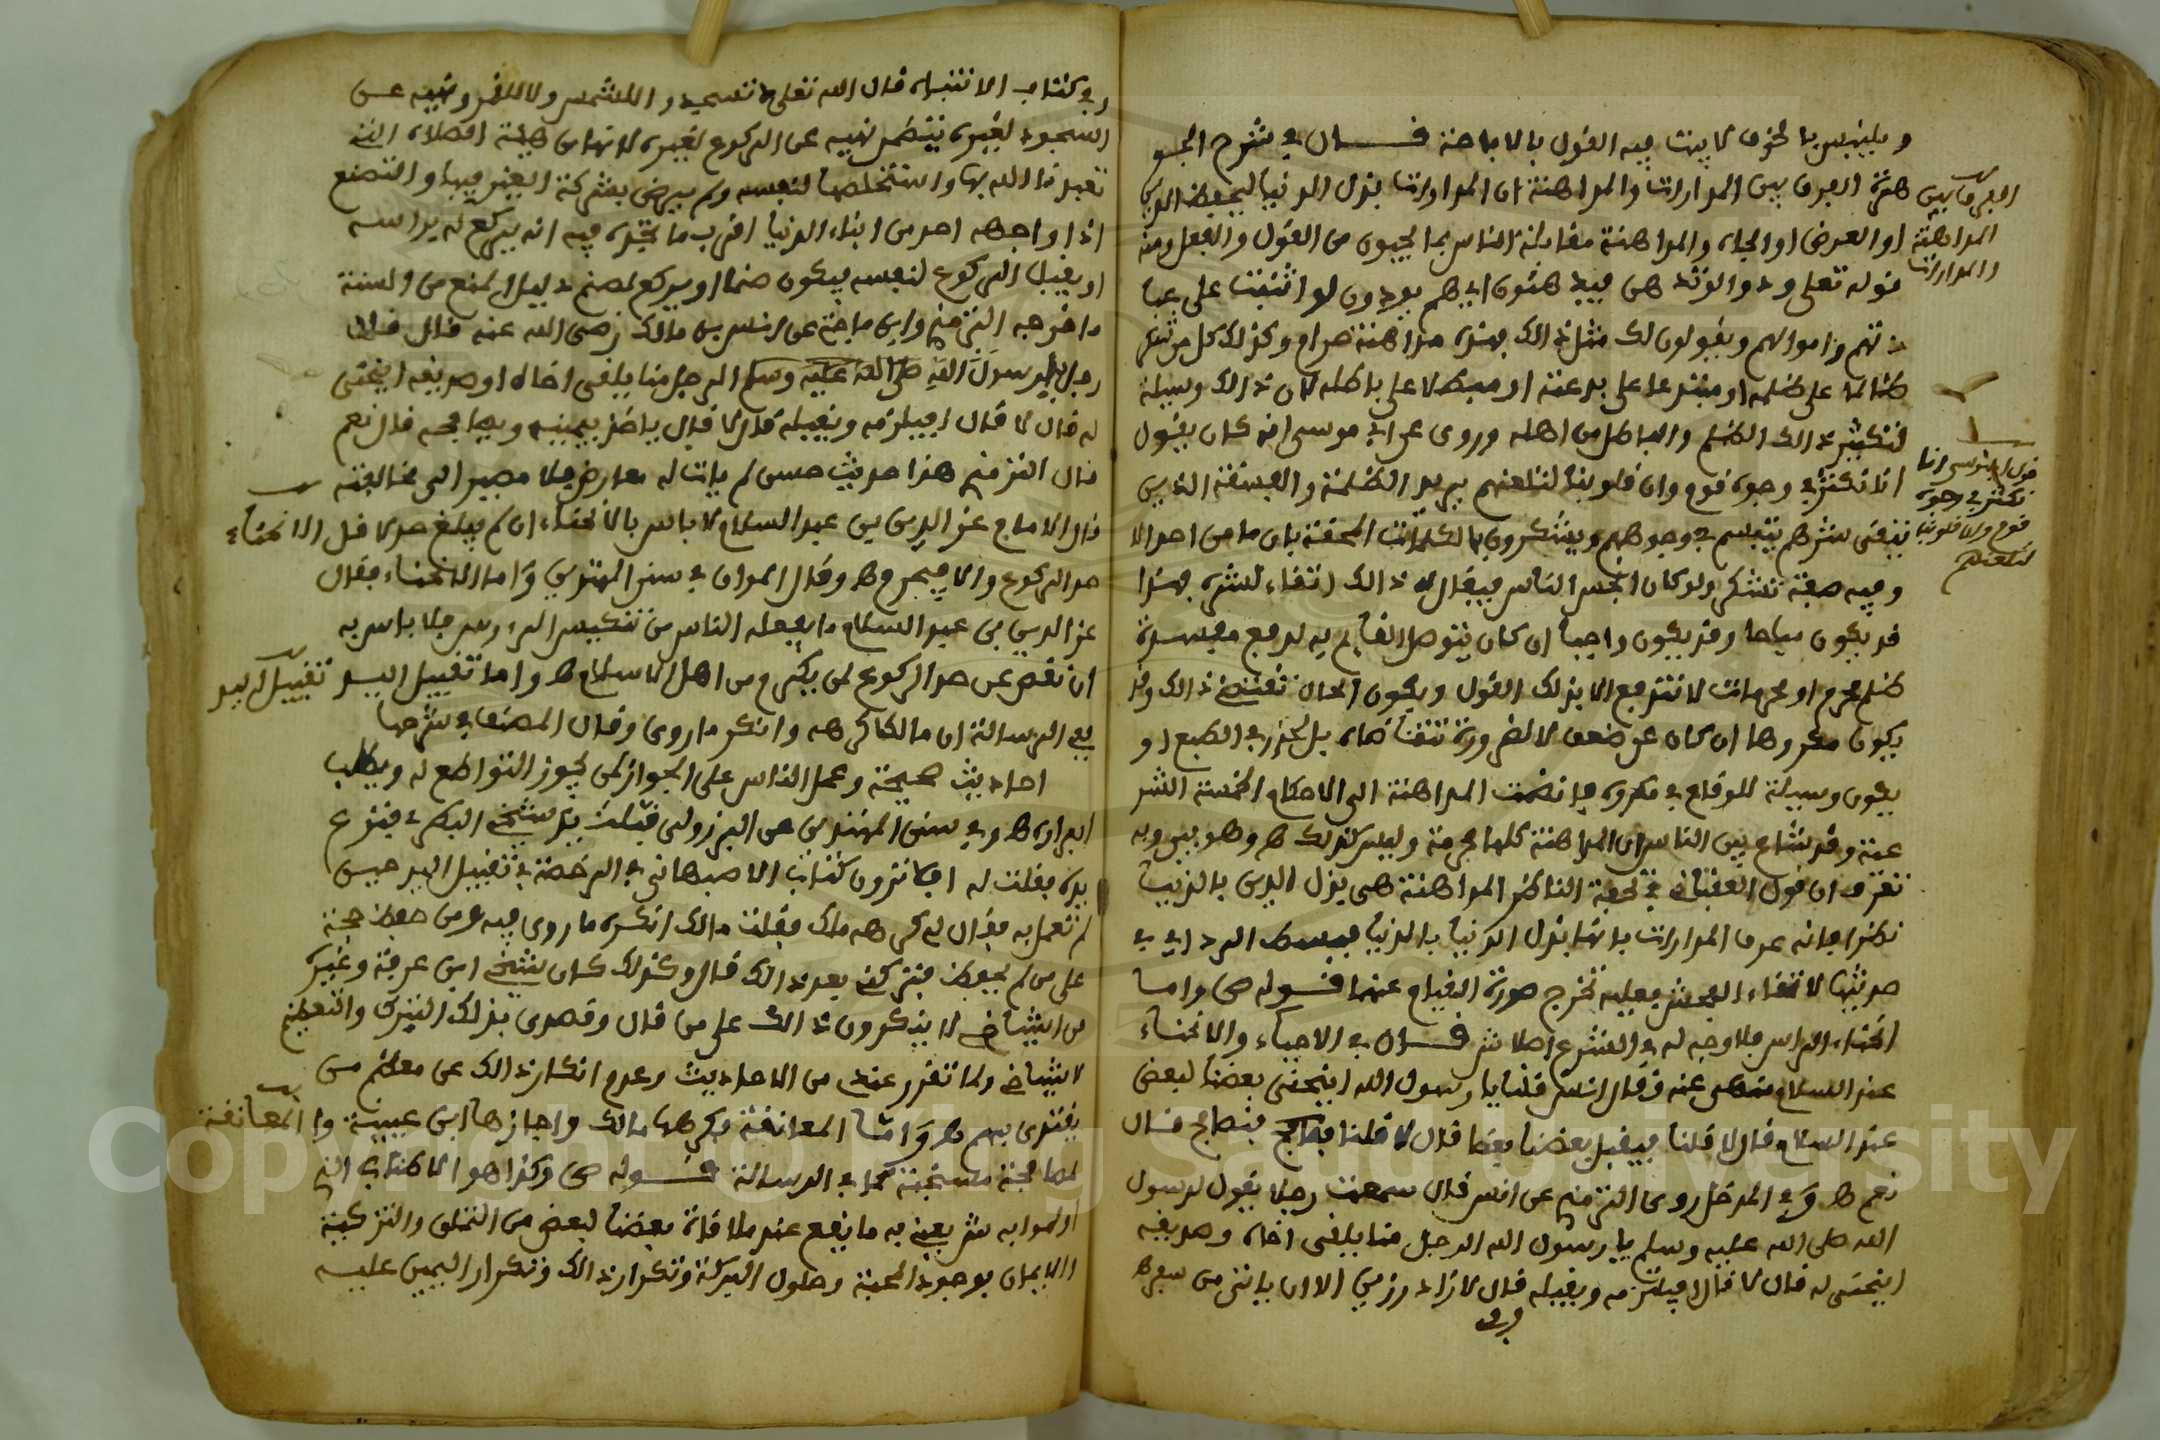 ويلتبس بالخوف لا يثبت فيه القول بالاباحة قال في شرح
هذه الفرق بين المدارات والمداهنة ان المدارات بذل الدنيا ليحفظ الدين
او العرض او الجاه والمداهنة مقابلة الناس بما يحبون من القول والفعل ومنه
قوله تعلى ودوا لو تدهن فيدهنون اي هم يودون لو اثنيت على عبا
دتهم واموالهم ويقولون لك مثل ذالك بهذه مداهنة حرام وكذلك كل من شكر
ظالما على ظلمه او مبتدعا على بدعته او مبطلا على باطله لان ذالك وسيلة
لتكثير ذالك الظلم والباطل من اهله وروى عن ابي موسى انه كان يقول
انا لنكشر في وجوه قوم وان قلوبنا لتلعنهم يريد الظلمة والفسقة الذين
يتقى شرهم يتبسم في وجوههم ويشكرون بالكلمات المحقة بان ما من احد الا
وفيه صفة تشكر ولو كان انجس الناس فيقال له ذالك اتقاء لشره بهذا
قد يكون مباحا وقد يكون واجبا ان كان يتوصل القايم به لدفع مفسدة
ظلم محرم او محرمات لا تندفع الا بذلك القول ويكون الحال تقتضي ذالك وقد
يكون مكروها ان كان عن ضعف لا لضرورة تتقاضاه بل لخور في الطبع او
يكون وسيلة للوقاع في مكروه فانقسمت المداهنة الى الاحكام الخمسة الشر
عية وقد شاع بين الناس ان المداهنة كلها محرمة وليس كذلك ط وهو يبين به
تعرف ان قول العقباني في تحفة الناظر المداهنة هي بذل الدين بالدنيا
نظرا فانه عرف المدارات بانها بذل الدنيا بالدنيا فبسط الرداء في
حديثها لاتقاء الفحش فعليه تخرج صورة القيام عندها قوله ص واما
انحناء الراس فلا وجه له في الشرع اصلا ش قال في الاحياء والانحناء
عند السلام منهي عنه وقال انس قلنا يا رسول الله اينحني بعضنا لبعض
عند السلام قال لا قلنا فيقبل بعضنا بعضا قال لا قلنا فيصافح قال
نعم ط وفي المدخل روى الترمذي عن انس قال سمعت رجلا يقول لرسول
الله صلى الله عليه وسلم يا رسول الله الرجل منا يلقى اخاه وصديقه
اينحنى له قال لا قال افيلتزمه ويقبله قال لا زاد رزين الا ان ياتي من سفر ط
وفي
الفرق بين
المداهنة
والمدارات
قول ابي موسى انا
نكشر في وجوه
قوم وان قلوبنا
لتلعنهم
وفي كتاب الانتباه قال الله تعلى لا تسجدوا للشمس ولا للقمر ونهيه عن
السجود لغيره يتضمن نهيه عن الركوع لغيره لانهما من هيئة الصلاة التي
تعبدنا الله بها واستخلصها لنفسه ولم يرض بشركة الغير فيها والتصنع
اذا واجهه احد من ابناء الدنيا اقرب ما تجده فيه انه يركع له براسه
او يقبل الركوع لنفسه فيكون صنما او يركع لصنم دليل المنع من السنة
ما خرجه الترمذي وابن ماجة عن انس بن مالك رضي الله عنه قال قال
رجل يا رسول الله صلى الله عليه وسلم الرجل منا يلقى اخاه او صديقه اينحنى
له قال لا قال افيلتزمه ويقبله قال لا قال ياخذ بيمينه ويصافحه قال نعم
قال الترمذي هذا حديث حسن لم يات له معارض فلا مصير الى مخالفته
قال الامام عز الدين بن عبد السلام لا باس بالانحناء ان لم يبلغ حد
حد الركوع والا فيحرم ط وقال المواق في سنن المهتدين واما الانحناء فقال
عز الدين بن عبد السلام ما يفعله الناس من تنكيس الراس فلا باس به
ان نقص عن حد الركوع لمن يكرم من اهل الاسلام ط واما تقبيل اليد
ففي الرسالة ان مالكا كرهه وانكر ما روي وقال المصنف في شرحها
احاديث صحيحة وعمل الناس على الجواز لمن يجوز التواضع له ويطلب
ابراره ط وفي سنن المهتدين عن البرزولي قبلت يد شيخي البكري فنزع
يده فقلت له افلا ترون كتاب الاصبهاني في الرخصة في تقبيل اليد حين
لم تعمل به فقال لي كرهه مالك فقلت مالك انكر ما روي فيه ومن حفظ حجة
على من لم يحفظ فتركني بعد ذالك قال وكذلك كان شيخي ابن عرفة وغيره
من اشياخي لا ينكرون ذالك على من قال وقصدي بذلك التبرك والتعظيم
لاشياخي ولما تقرر عندي من الاحاديث وعدم انكار ذالك عن معظم من
يقتدى بهم ط واما المعانقة فكرهها مالك واجازها ابن عيينة وا
لمصافحة مستحبة كما في الرسالة قوله ص وكذا هو الاطناب في
المواجهة ش يعني به ما يقع عند ملاقاة بعضنا لبعض من التملق والتزكية
والايمان بوجود المحبة وحلول البركة وتكرار ذالك وتكرار اليمين عليه
الانحناء
تقبيل اليد
المعانقة
Copyright © King Saud University